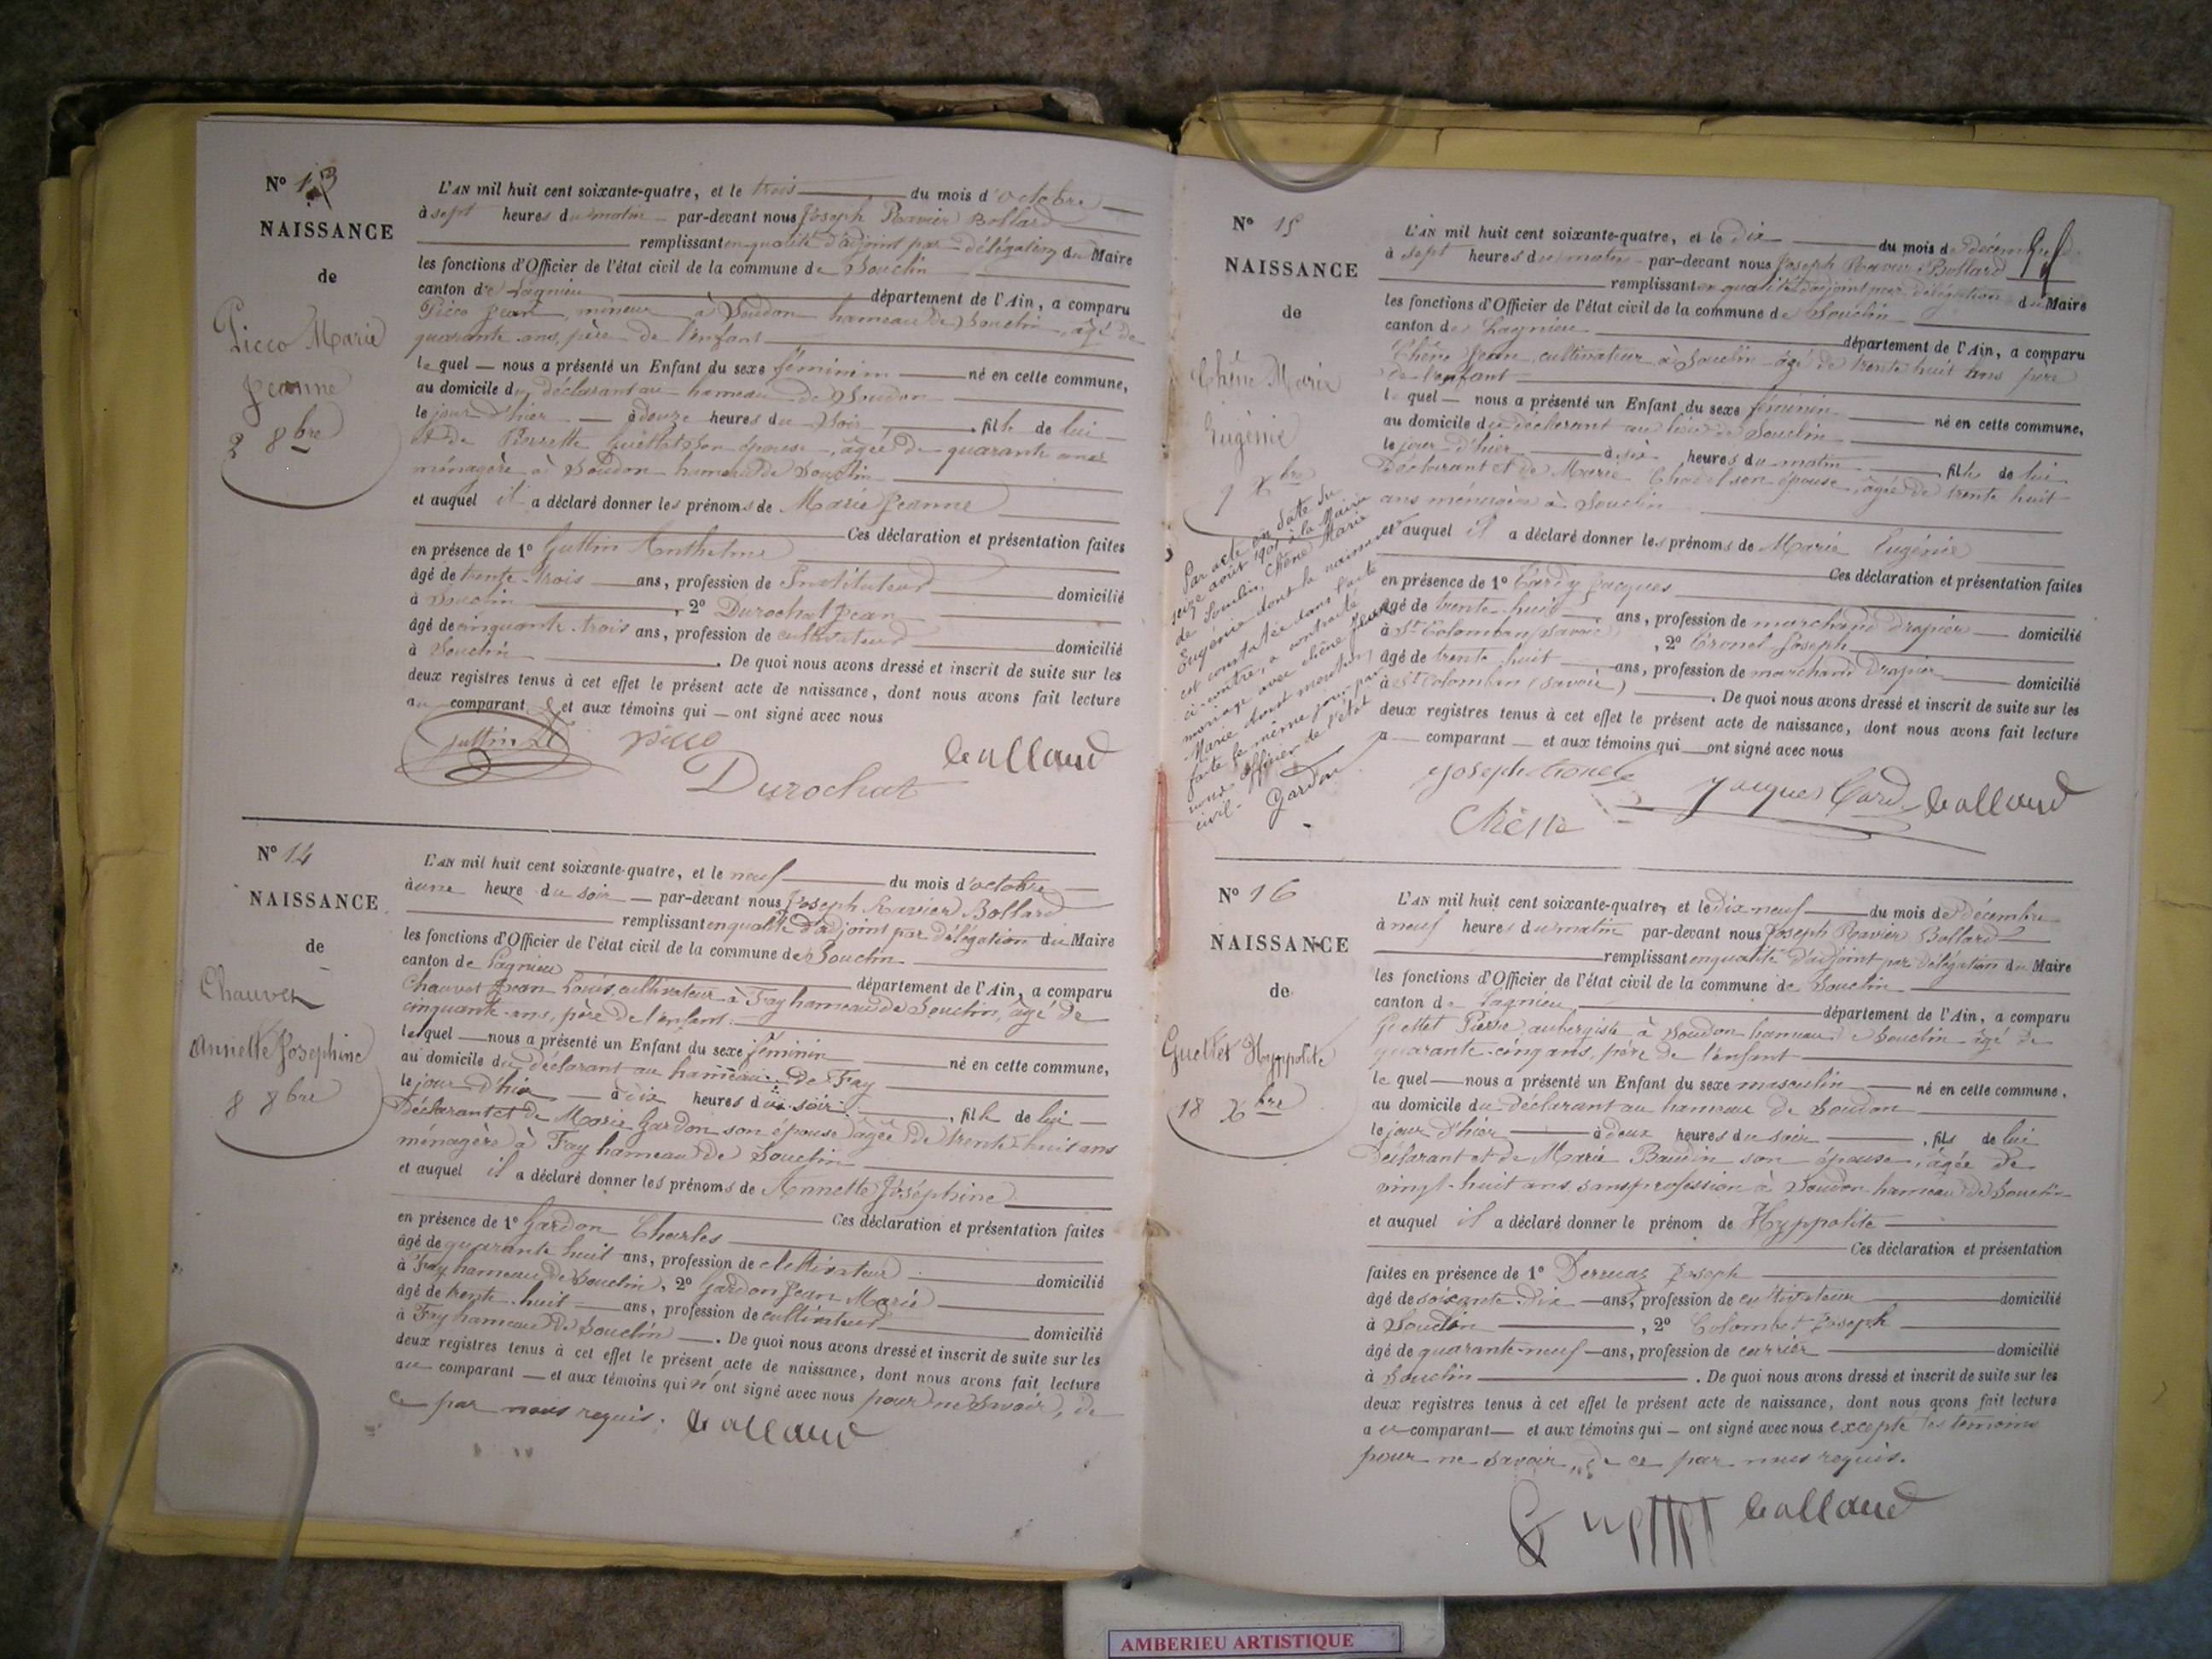 N° 13
NAISSANCE
de
Picco Marie
Jeanne
2 8bre
L'AN mil huit cent soixante-quatre, et le trois du mois d'octobre
à sept heures du matin par-devant nous Joseph Ravier Bollard
remplissant en qualité d'adjoint par délégation du Maire
les fonctions d'Officier de l'état civil de la commune de Souclin
canton de Lagnieu département de l'Ain, a comparu
Picco Jean, mineur à Soudon hameau de Souclin, âgé de
quarante ans, père de l'enfant
lequel nous a présenté un Enfant du sexe féminin né en cette commune,
au domicile du déclarant au hameau de Soudon
le jour d'hier à douze heures du soir, fille de lui
et de Pierrette Guettet son épouse, âgée de quarante ans
ménagère à Soudon hameau de Souclin
et auquel il a déclaré donner les prénoms de Marie Jeanne
Ces déclaration et présentation faites
en présence de 1° Guttin Anthelme
âgé de trente-trois ans, profession de Instituteur domicilié
à Souclin, 2° Durochat Jean
âgé de cinquante-trois ans, profession de cultivateur domicilié
à Souclin. De quoi nous avons dressé et inscrit de suite sur les
deux registres tenus à cet effet le présent acte de naissance, dont nous avons fait lecture
au comparant et aux témoins qui ont signé avec nous
Guttin picco Bollard
Durochat
N° 14
NAISSANCE
de
Chauvet
Annette Josephine
8 8bre
L'AN mil huit cent soixante-quatre, et le neuf du mois d'octobre
à une heure du soir par-devant nous Joseph Ravier Bollard
remplissant en qualité d'adjoint par délégation du Maire
les fonctions d'Officier de l'état civil de la commune de Souclin
canton de Lagnieu département de l'Ain, a comparu
Chauvet Jean Louis, cultivateur à Fay hameau de Souclin, âgé de
cinquante ans, père de l'enfant.
lequel nous a présenté un Enfant du sexe féminin né en cette commune,
au domicile du déclarant au hameau de Fay
le jour d'hier à dix heures du soir, fille de lui
Déclarant et de Marie Gardon son épouse âgée de trente-huit ans
ménagère à Fay hameau de Souclin
et auquel il a déclaré donner les prénoms de Annette Joséphine
Ces déclaration et présentation faites
en présence de 1° Gardon Charles
âgé de quarante huit ans, profession de cultivateur domicilié
à Fay hameau de Souclin, 2° Gardon Jean Marie
âgé de trente-huit ans, profession de cultivateur domicilié
à Fay hameau de Souclin. De quoi nous avons dressé et inscrit de suite sur les
deux registres tenus à cet effet le présent acte de naissance, dont nous avons fait lecture
au comparant et aux témoins qui n'ont signé avec nous pour ne savoir, de
ce par nous requis. Bollard
N° 15
NAISSANCE
de
Chêne Marie
Eugénie
9 Xbre
Par acte en date du
seize août 1901 à la Mairie
de Souclin, Chêne Marie
Eugénie dont la naissance
est constatée dans l'acte
ci-contre, a contracté
mariage avec chêne Jean
Marie dont mention
faite le même jour par
nous officier de l'état
civil.
Gardon
L'AN mil huit cent soixante-quatre, et le dix du mois de décembre
à sept heures du matin par-devant nous Joseph Ravier Bollard
remplissant en qualité d'adjoint par délégation du Maire
les fonctions d'Officier de l'état civil de la commune de Souclin
canton de Lagnieu département de l'Ain, a comparu
Chêne Jean, cultivateur à Souclin âgé de trente huit ans père
de l'enfant
lequel nous a présenté un Enfant du sexe féminin né en cette commune,
au domicile du déclarant au lieu de Souclin
le jour d'hier à six heures du matin, fille de lui
Déclarant et de Marie son épouse, âgée de trente huit
ans ménagère à Souclin
et auquel il a déclaré donner les prénoms de Marie Eugénie
Ces déclaration et présentation faites
en présence de 1° Cardy Jacques
âgé de trente-huit ans, profession de marchand drapier domicilié
à St Colomban (Savoie), 2° Tronel Joseph
âgé de trente huit ans, profession de marchand Drapier domicilié
à St Colomban (Savoie). De quoi nous avons dressé et inscrit de suite sur les
deux registres tenus à cet effet le présent acte de naissance, dont nous avons fait lecture
a comparant et aux témoins qui ont signé avec nous
Joseph Jacques Bollard
Chêne
N° 16
NAISSANCE
de
Guettet Hyppolite
18 Xbre
L'AN mil huit cent soixante-quatre, et le dix neuf du mois de décembre
à neuf heures du matin par-devant nous Joseph Ravier Bollard
remplissant en qualité d'adjoint par délégation du Maire
les fonctions d'Officier de l'état civil de la commune de Souclin
canton de Lagnieu département de l'Ain, a comparu
Guettet Pierre, aubergiste à Soudon hameau de Souclin âgé de
quarante-cinq ans, père de l'enfant
lequel nous a présenté un Enfant du sexe masculin né en cette commune,
au domicile du déclarant au hameau de Soudon
le jour d'hier à deux heures du soir, fils de lui
Déclarant et de Marie Baudin son épouse, âgée de
vingt-huit ans, sans profession à Soudon hameau de Souclin
et auquel il a déclaré donner le prénom de Hyppolite
Ces déclaration et présentation
faites en présence de 1° Derruaz Joseph
âgé de soixante-dix ans, profession de cultivateur domicilié
à Souclin, 2° Colombet Joseph
âgé de quarante-neuf ans, profession de carrier domicilié
à Souclin. De quoi nous avons dressé et inscrit de suite sur les
deux registres tenus à cet effet le présent acte de naissance, dont nous avons fait lecture
au comparant et aux témoins qui ont signé avec nous excepté les témoins
pour ne savoir, de ce par nous requis.
Guettet Bollard
AMBERIEU ARTISTIQUE